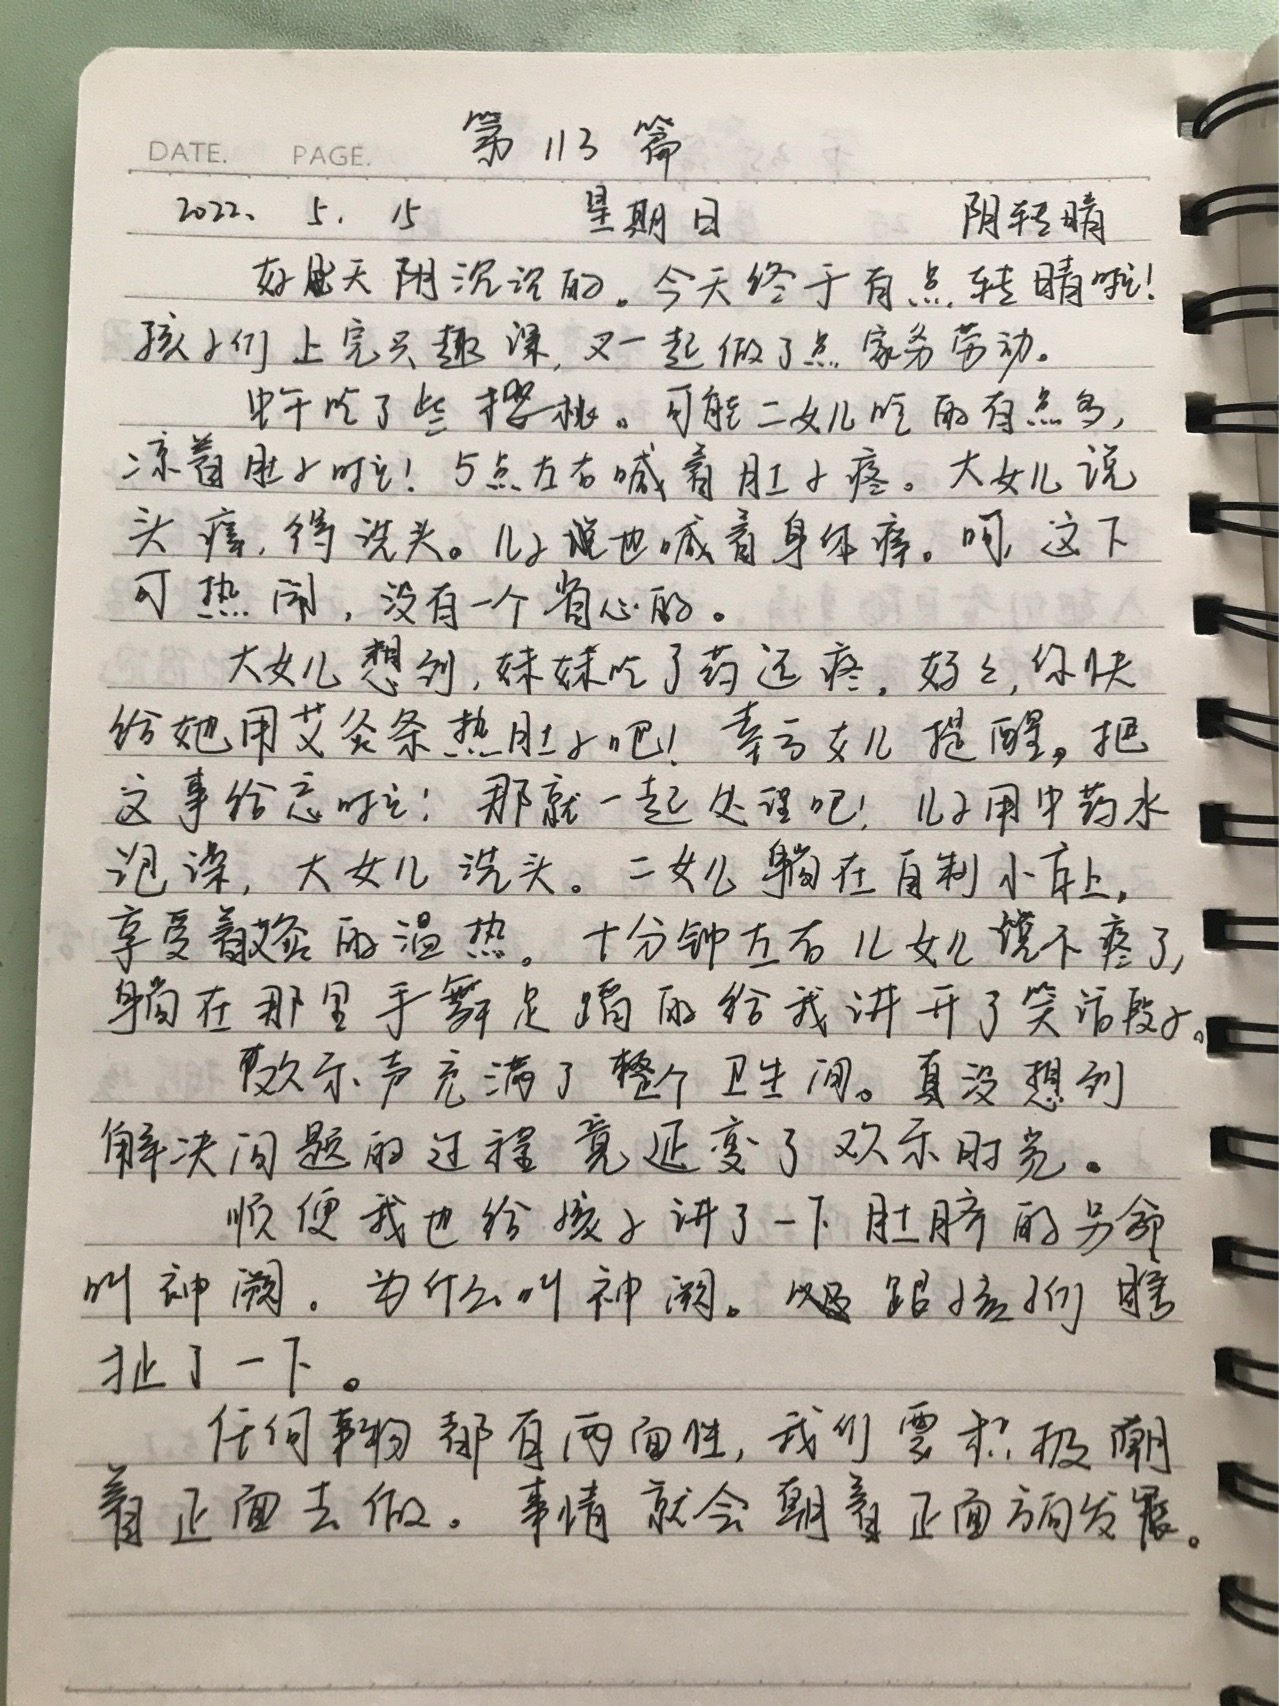 DATE. PAGE. 第113篇
2022. 5. 15 星期日 阴转晴
好些天阴沉沉的。今天终于有点转晴啦!
孩子们上完兴趣课,又一起做了点家务劳动。
中午吃了些樱桃。可能二女儿吃的有点多,
凉着肚子啦! 5点左右喊着肚子疼。大女儿说
头痒,得洗头。儿子说也喊着身体痒。呵,这下
可热闹,没有一个省心的。
大女儿想到,妹妹吃了药还疼,妈妈,你快
给她用艾灸条热肚子吧!幸亏女儿提醒,把
这事给忘啦! 那就一起处理吧! 儿子用中药水
泡澡,大女儿洗头。二女儿躺在自制小床上,
享受着艾灸的温热。十分钟左右儿女儿说不疼了,
躺在那里手舞足蹈的给我讲开了笑话段子。
欢乐声充满了整个卫生间。真没想到
解决问题的过程竟延变了欢乐时光。
顺便我也给孩子讲了一下肚脐的另命
叫神阙。为什么叫神阙。跟孩子们瞎
扯了一下。
任何事物都有两面性,我们要积极朝
着正面去做。事情就会朝着正面方向发展。